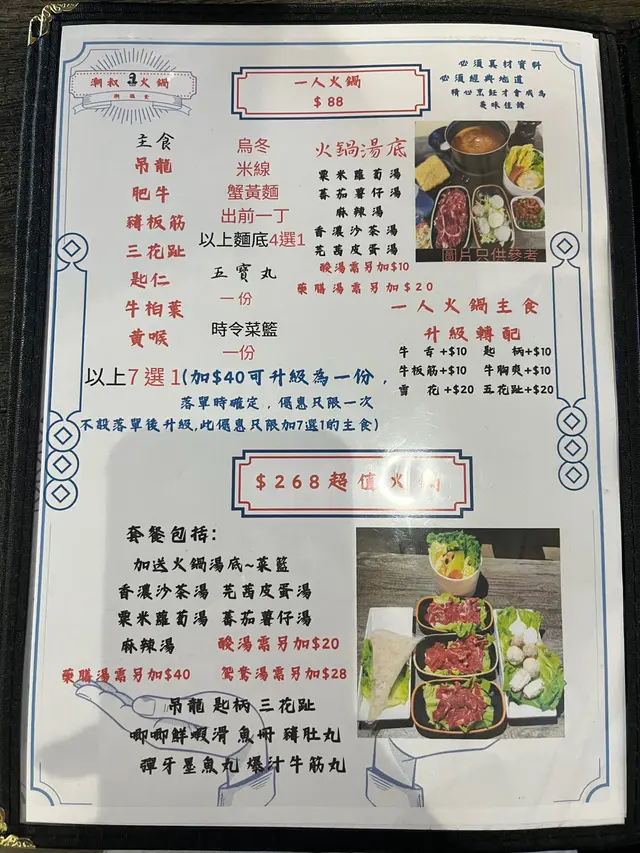 潮叔火鍋
一人火鍋
$88
必須真材實料
必須經典地道
精心烹飪才會成為
美味佳餚
主食
吊龍
肥牛
豬板筋
三花趾
匙仁
牛柏葉
黃喉
烏冬
米線
蟹黃麵
出前一丁
以上麵底4選1
五寶丸
一份
時令菜籃
一份
火鍋湯底
粟米蘿蔔湯
蕃茄薯仔湯
麻辣湯
香濃沙茶湯
芫茜皮蛋湯
酸湯需另加$10
藥膳湯需另加$20
圖片只供參考
一人火鍋主食
升級轉配
牛舌+$10 匙柄+$10
牛板筋+$10 牛胸爽+$10
雪花+$20 五花趾+$20
以上7選1(加$40可升級為一份,
落單時確定,優惠只限一次
不設落單後升級,此優惠只限加7選1的主食)
$268超值火鍋
套餐包括:
加送火鍋湯底~菜籃
香濃沙茶湯 芫茜皮蛋湯
粟米蘿蔔湯 蕃茄薯仔湯
麻辣湯 酸湯需另加$20
藥膳湯需另加$40 鴛鴦湯需另加$28
吊龍 匙柄 三花趾
唧唧鮮蝦滑 魚冊 豬肚丸
彈牙墨魚丸 爆汁牛筋丸